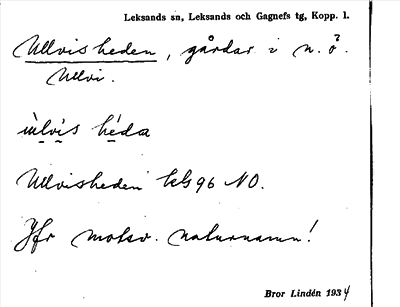 Leksands sn, Leksands och Gagnefs tg, Kopp. l.
Ullvisheden, gårdar i n. ö.
Ullvi.
ùlvis héda
Ullvisheden kbl 96 NO.
Jfr motsv. naturnamn!
Bror Lindén 1934